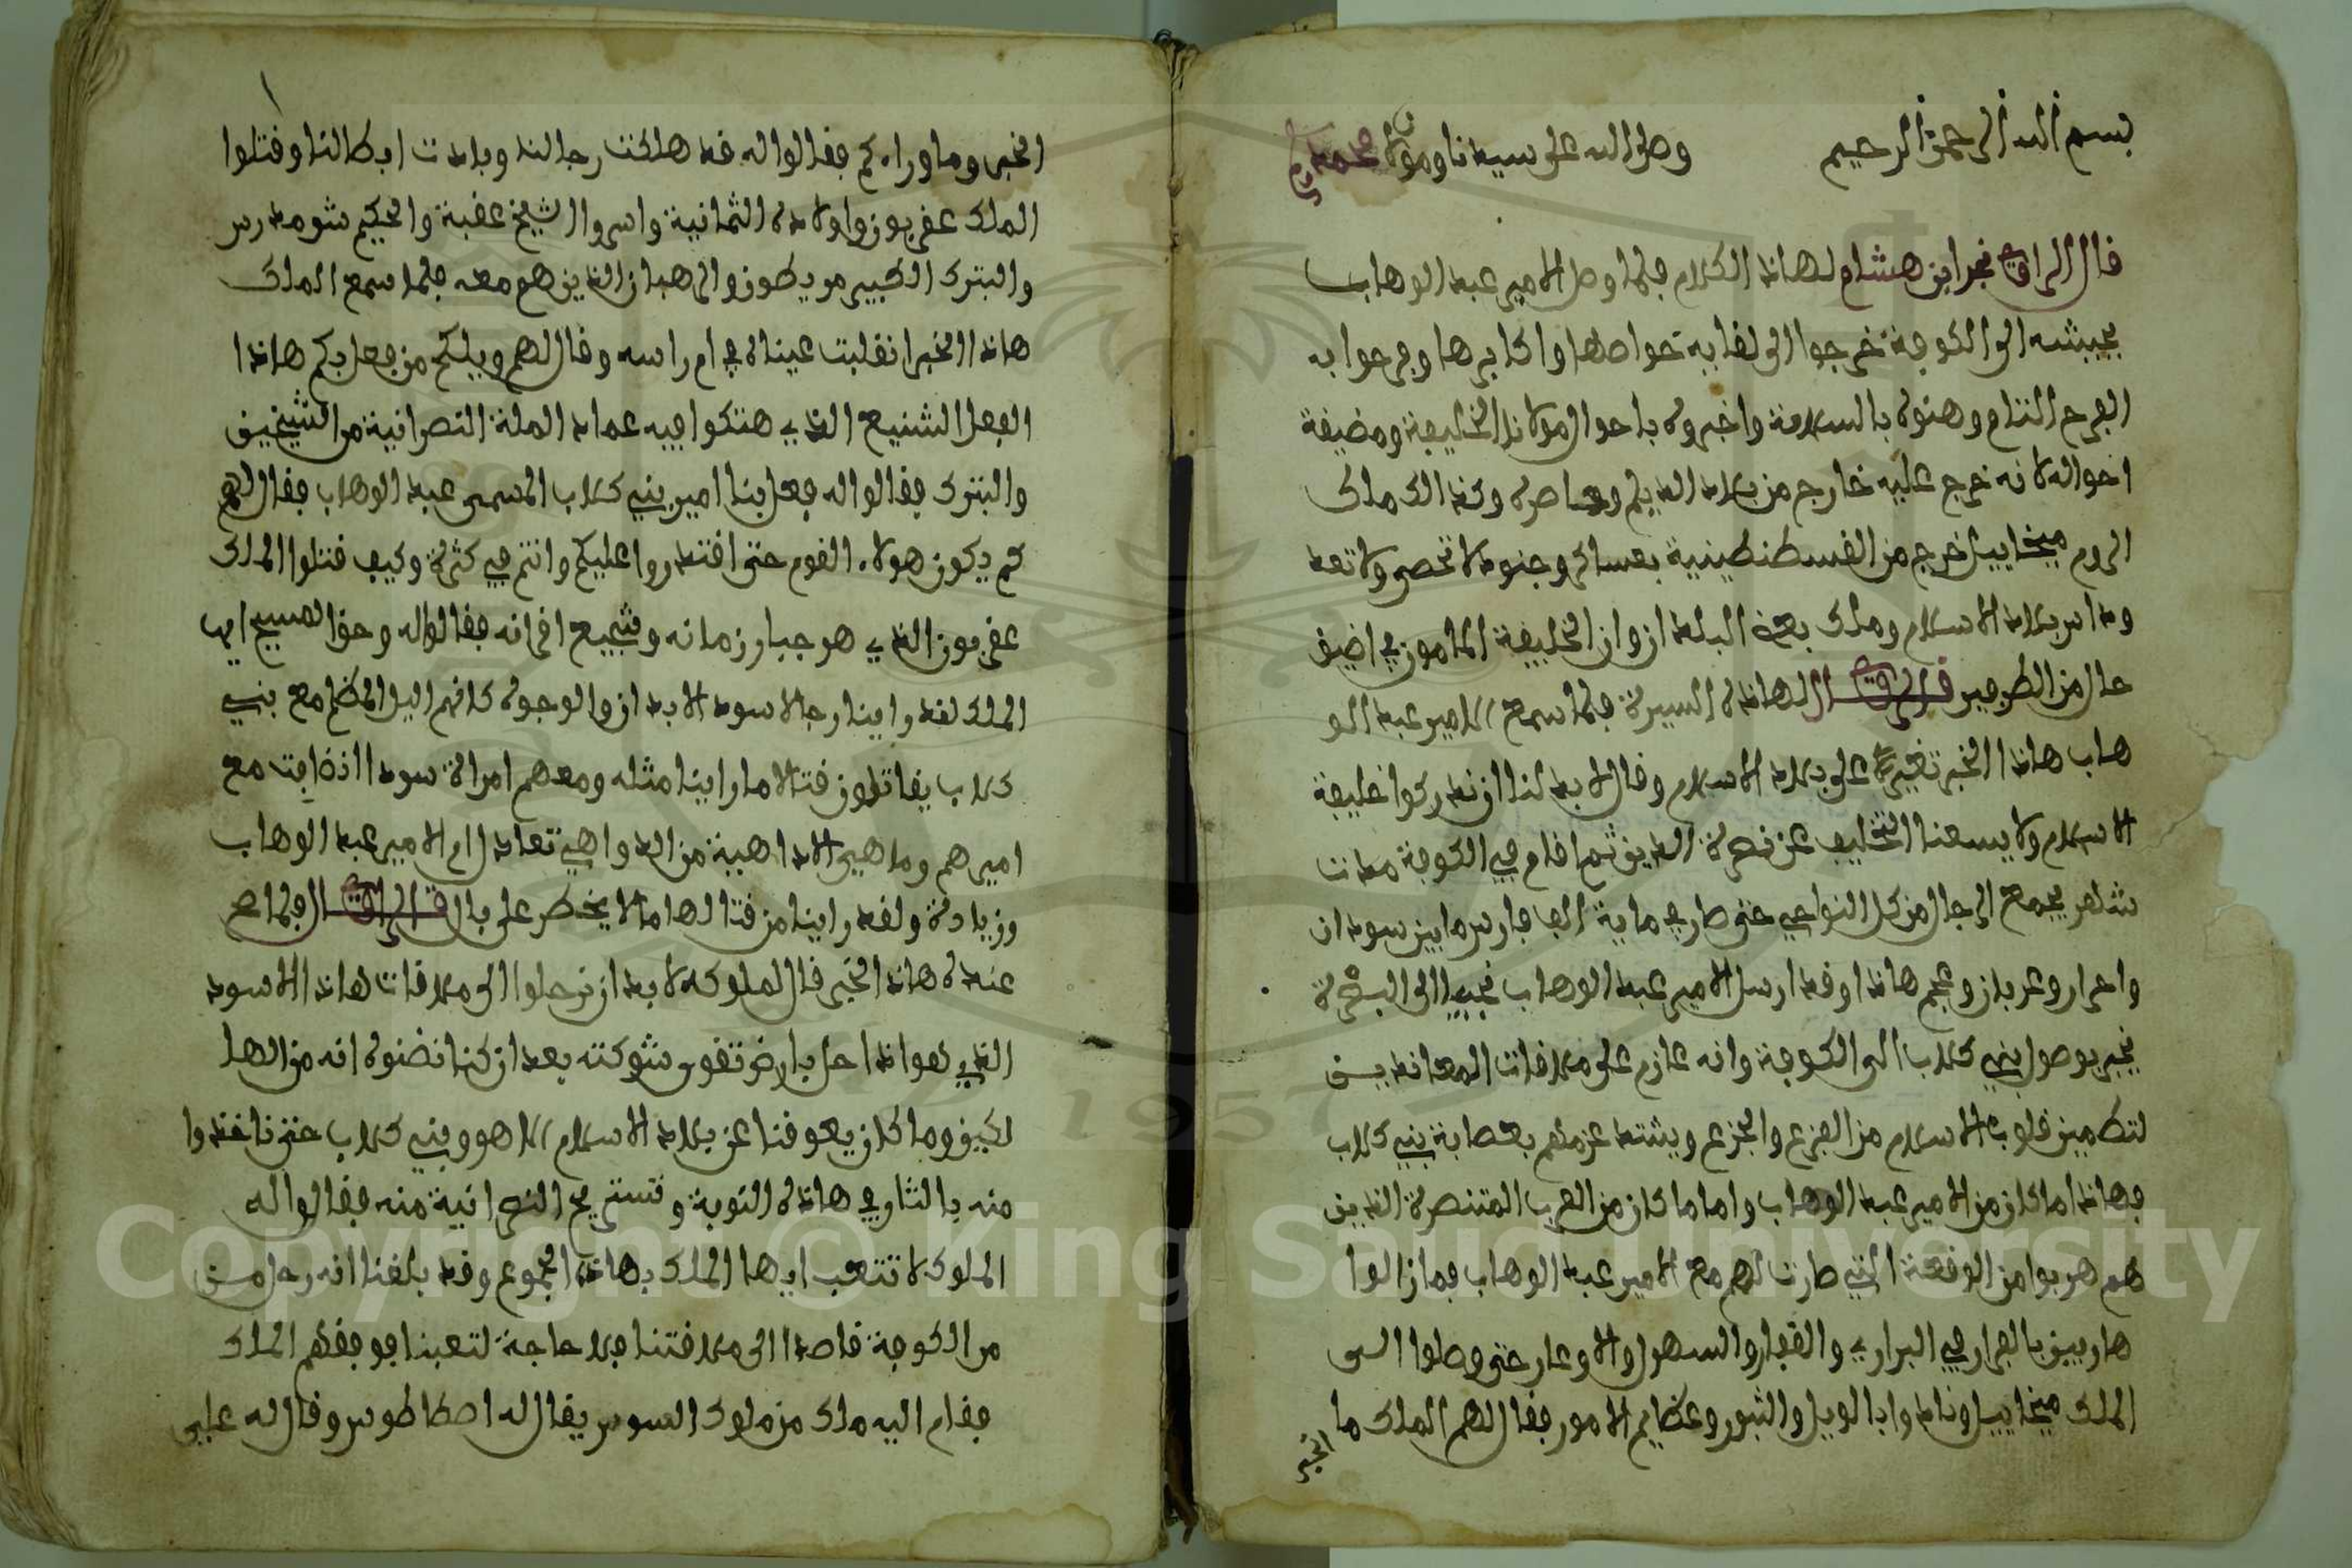 بسم الله الرحمن الرحيم وصلى الله على سيدنا ومولانا محمد
قال الراوي نجد ابن هشام لهاذا الكلام فلما وصل الامير عبد الوهاب
بجيشه الى الكوفة خرجوا الى لقايه خواصها واكابرها وفرحوا به
الفرح التام وهنوه بالسلامة واخبروه باحوال مولانا الخليفة ومضيقة
احواله لانه خرج عليه خارج من بلاد الديلم وحاصره وكذالك ملك
الروم ميخاييل خرج من القسطنطينية بعساكر وجنود لا تحصى ولا تعد
وداس بلاد الاسلام وملك بعض البلدان وان الخليفة المامون في اضيق
حال من الطرفين قال الراوي لهاذه السيرة فلما سمع الامير عبد الو
هاب هاذا الخبر تغير على بلاد الاسلام وقال لابد لنا ان ندركوا خليفة
الاسلام ولا يسعنا التخليف عن نصرة الدين ثم اقام في الكوفة مدت
شهر يجمع الرجال من كل النواحي حتى صار في ماية الف فارس مابين سودان
واحرار وعربان وعجم هاذا وقد ارسل الامير عبد الوهاب نجيبا الى البصرة
يخبر بوصول بني كلاب الى الكوفة وانه عازم على ملاقات المعاندين
لتطمين قلوب الاسلام من الفزع والجزع ويشتد عزمهم بعصابة بني كلاب
فهاذا ما كان من الامير عبد الوهاب واما ما كان من العرب المتنصرة الذين
هم هربوا من الوقعة التي صارت لهم مع الامير عبد الوهاب فما زالوا
هاربين بالفرار في البراري والقفار والسهول والاوعار حتى وصلوا الى
الملك ميخاييل ونادوا بالويل والثبور وعظايم الامور فقال لهم الملك ما
الخبر
الخبر وما وراءكم فقالوا له قد هلكت رجالنا وبادت ابطالنا وقتلوا
الملك عفربون واولاده الثمانية واسروا الشيخ عقبة والحكيم شومدرس
والبترك الكبير مريطون والرهبان الذين هم معه فلما سمع الملك
هاذا الخبر انقلبت عيناه في ام راسه وقال لهم ويلكم من فعل بكم هاذا
الفعل الشنيع الذي هتكوا فيه عماد الملة النصرانية من الشيخين
والبترك فقالوا له فعل بنا امير بني كلاب المسمى عبد الوهاب فقال لهم
كم يكون هولاء القوم حتى اقتدروا عليكم وانتم في كثرة وكيف قتلوا الملك
عفربون الذي هو جبار زمانه وشجيع اقرانه فقالوا له وحق المسيح ايها
الملك لقد راينا رجالا سود الابدان والوجوه كانهم اليل المظلم مع بني
كلاب يقاتلون قتالا ما راينا مثله ومعهم امراة سودا اذهبت مع
اميرهم وما هي الا داهية من الدواهي تعادل ام الامير عبد الوهاب
وزيادة ولقد راينا من قتالها ما لا يخطر على بال قال الراوي فلما صح
عنده هاذا الخبر قال لملوكه لابد ان نرحلوا الى ملاقات هاذا الاسود
الذي هواذا حل بارض تقوى شوكته بعد ان كنا نضنوه انه من الها
لكين وما كان يعوقنا عن بلاد الاسلام الا هو وبني كلاب حتى ناخذوا
منه بالثار في هاذه النوبة وتستريح النصرانية منه فقالوا له
الملوك لا تتعب ايها الملك بهاذه الجموع وقد بلغنا انه رحل من
من الكوفة قاصدا الى ملاقتنا فلا حاجة لتعبنا فوقفهم الملك
فقام اليه ملك من ملوك السوس يقال له اصطاطوس وقال له علي
Copyright © King Saud University
1957